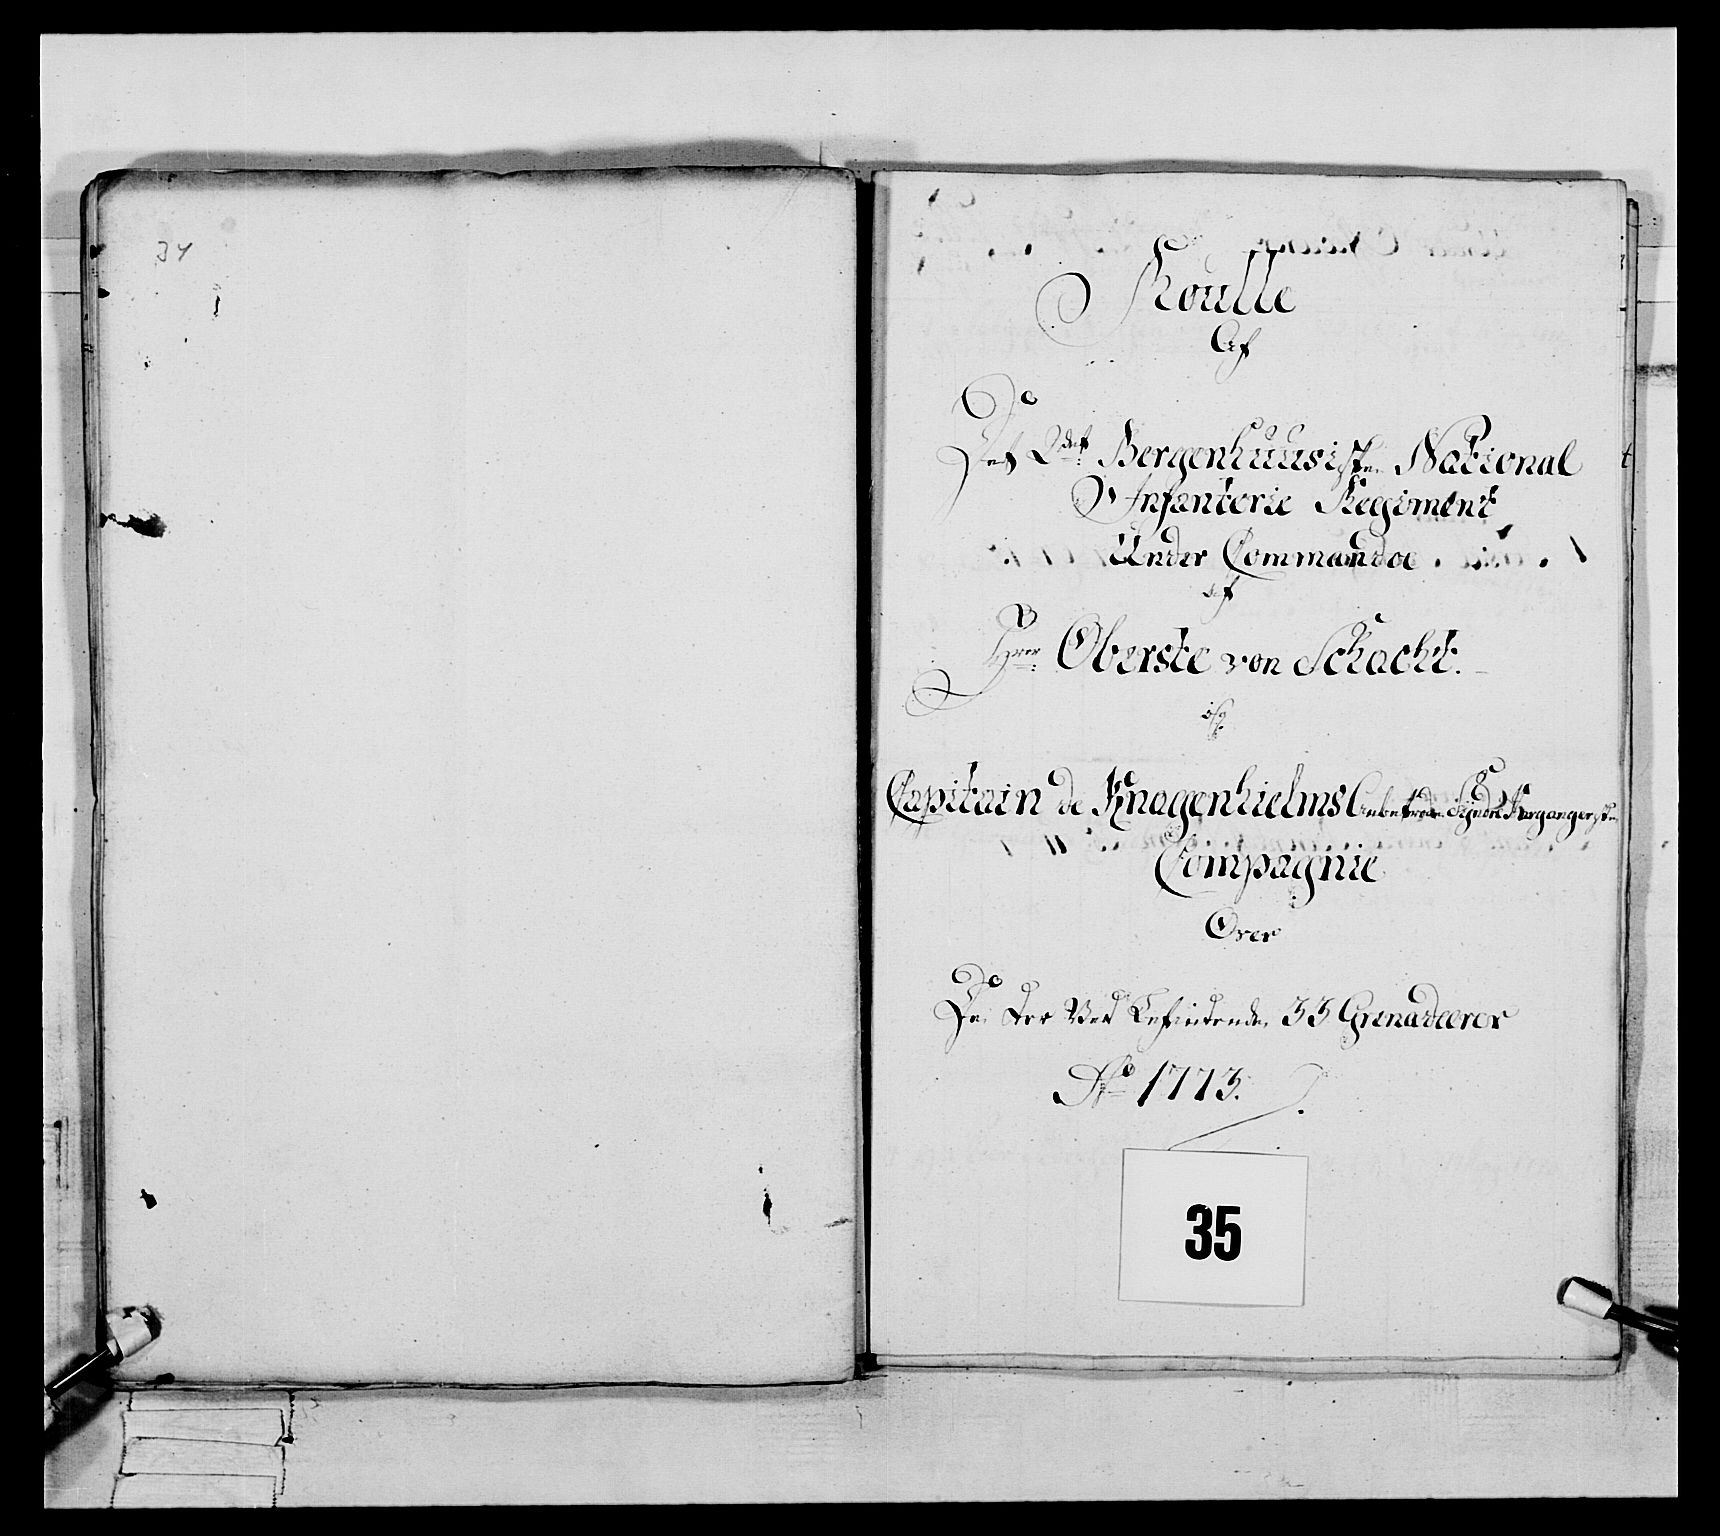 34
Roulle
Af
Det 2det Bergenhuusiske National
Infanterie Regiment
Under Commando
af
Herr Oberste von Schacht.
og
Capitain de Knagenhielms
Compagnie
Over
De der Ved befindende 33 Grenadeerer
Ao 1773.
35